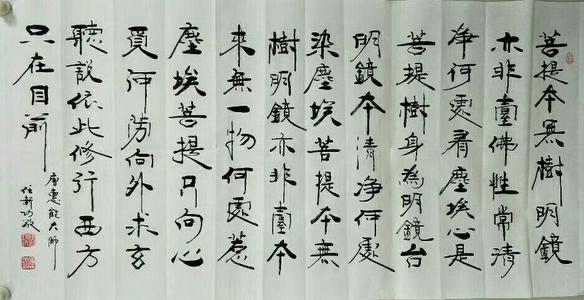 菩提本無樹明鏡
亦非臺佛性常清
净何處看塵埃心是
菩提樹身為明鏡台
明鏡本清净何處
染塵埃菩提本無
樹明鏡亦非臺本
来無一物何處惹
塵埃菩提只向心
覓何勞向外求玄
聽說依此修行西方
只在目前
唐惠能大師
任新功敬